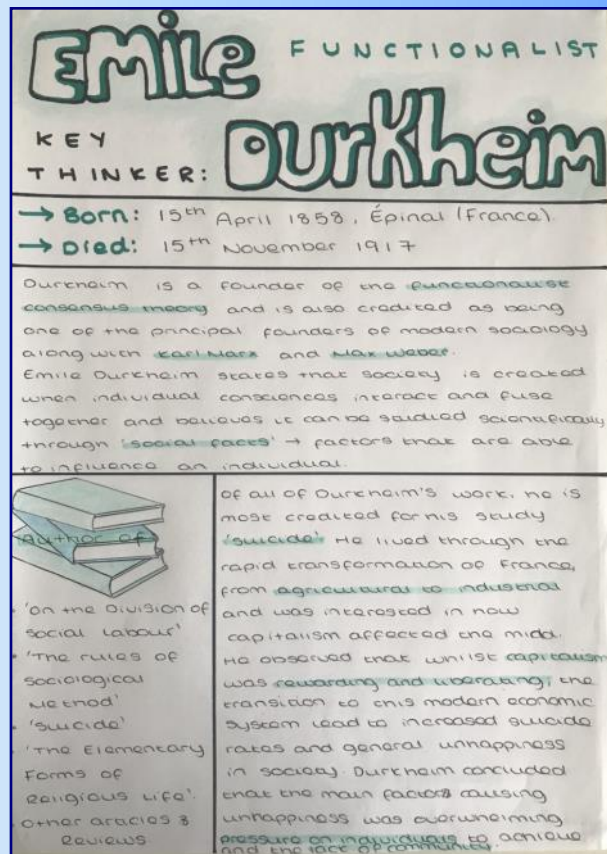 EMILE FUNCTIONALIST
KEY
THINKER: DURKHEIM
→ Born: 15th April 1858, Épinal (France).
→ Died: 15th November 1917
Durkheim is a founder of the functionalist
consensus theory and is also credited as being
one of the principal founders of modern sociology
along with Karl Marx and Max Weber.
Emile Durkheim states that society is created
when individual consciences interact and fuse
together and believes it can be studied scientifically
through 'social facts' → factors that are able
to influence an individual.
Author of
• 'On the Division of
Social Labour'
• 'The rules of
sociological
Method'
• 'Suicide'
• 'The Elementary
Forms of
Religious Life'.
Other articles &
Reviews
Of all of Durkheim's work, he is
most credited for his study
'suicide'. He lived through the
rapid transformation of France,
from agricultural to industrial
and was interested in how
capitalism affected the mind.
He observed that whilst capitalism
was rewarding and liberating, the
transition to this modern economic
system lead to increased suicide
rates and general unhappiness
in society. Durkheim concluded
that the main factors causing
unhappiness was overwhelming
pressure on individuals to achieve
and the lack of community.